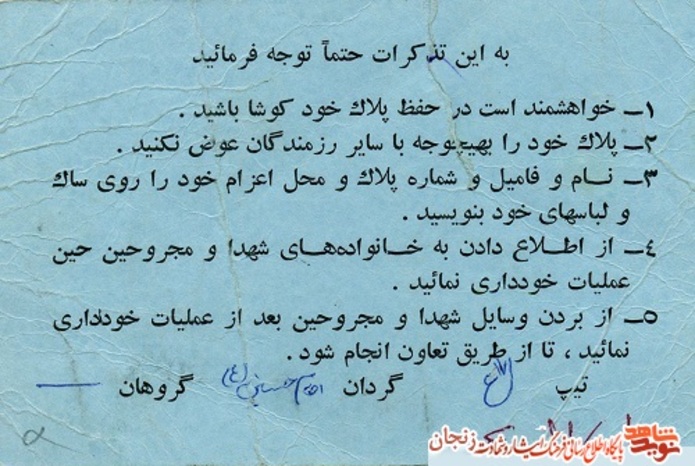 به این تذکرات حتماً توجه فرمائید
۱ـ خواهشمند است در حفظ پلاک خود کوشا باشید .
۲ـ پلاک خود را بهیچوجه با سایر رزمندگان عوض نکنید .
۳ـ نام و فامیل و شماره پلاک و محل اعزام خود را روی ساک
و لباسهای خود بنویسید .
۴ـ از اطلاع دادن به خانواده‌های شهدا و مجروحین حین
عملیات خودداری نمائید .
۵ـ از بردن وسایل شهدا و مجروحین بعد از عملیات خودداری
نمائید ، تا از طریق تعاون انجام شود .
تیپ گردان امام حسین (ع) گروهان
نوید شاهد
پایگاه اطلاع رسانی فرهنگ ایثار و شهادت زنجان